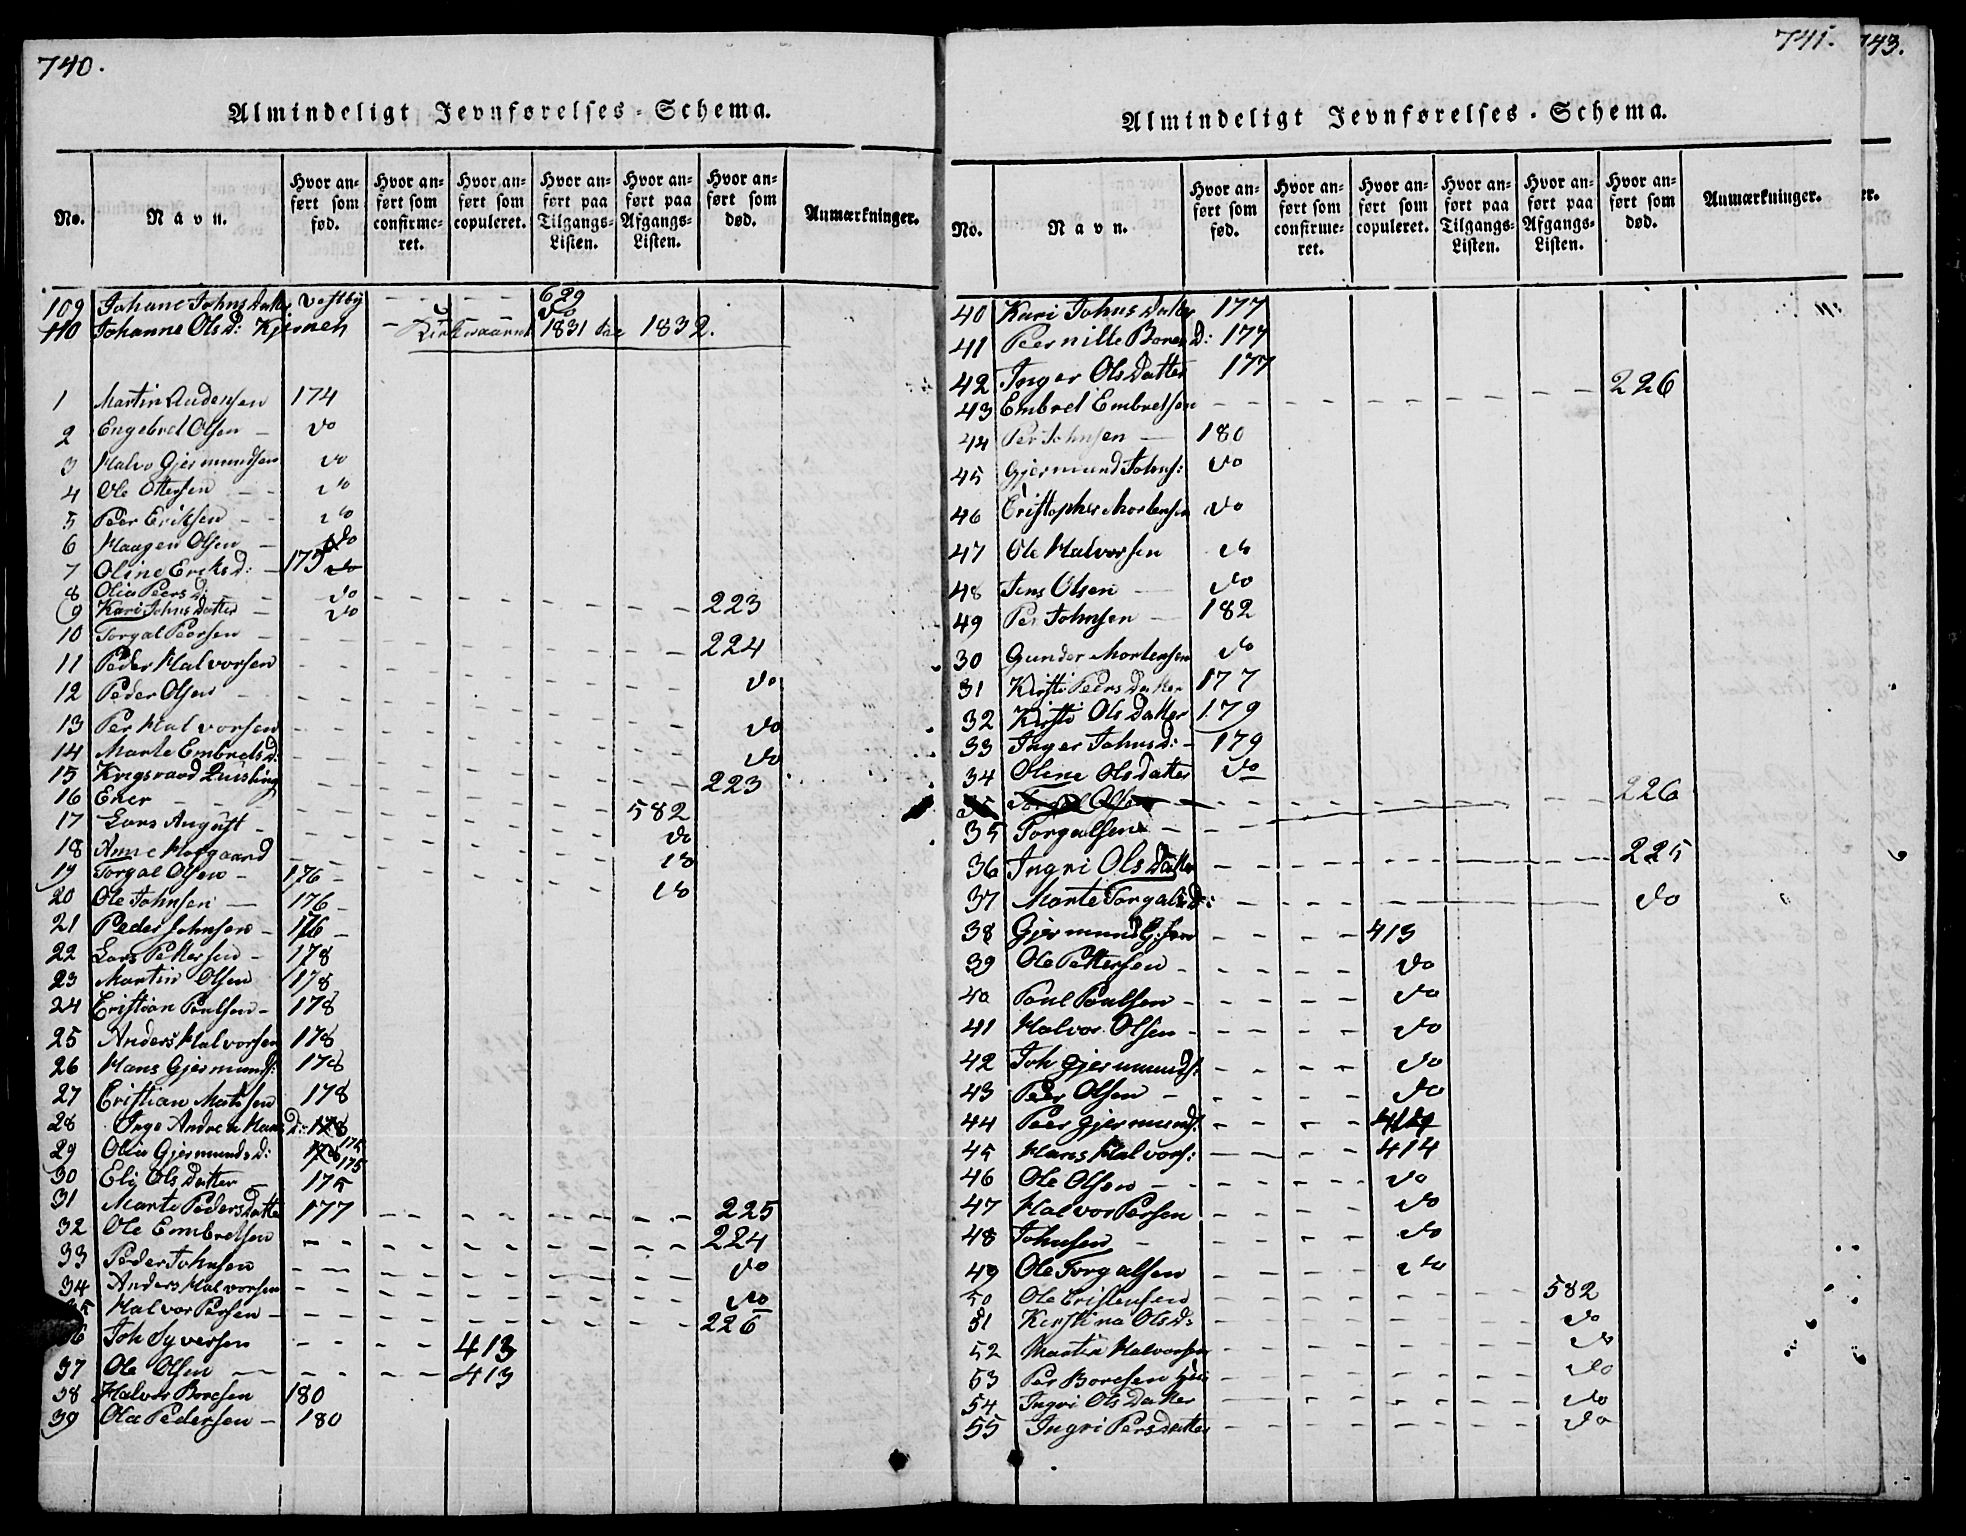 740.
Almindeligt Jevnførelses-Schema.
No. Navn. Hvor anført som fød. Hvor anført som confirmeret. Hvor anført som copuleret. Hvor anført paa Tilgangs-Listen. Hvor anført paa Afgangs-Listen. Hvor anført som død. Anmærkninger.
109 Johane Johns Datter Vestby - - - - 629
110 Johanne Olsd: Kjernen - - do
1831 til 1832.
1 Martin Andersen 174
2 Engebret Olsen - do
3 Halvo Gjermundsen do
4 Ole Ottersen - - do
5 Peer Eriksen - - do
6 Haagen Olsen - do
7 Oline Eriksd: - 175 do
8 Olia Peersd: - do
9 Kari Johns Datter - do - - - - 223
10 Torgal Peersen - - - - 224
11 Peder Halvorsen - - - - do
12 Peder Olsen - - - - do
13 Per Halvorsen - - - - do
14 Marte Embretsd: - - - - 223
15 Krigsraad Quisling - - - 582
16 Ener - - - - do
17 Lars August - - - - do
18 Anne Horgaard - - - - do
19 Torgal Olsen - 176 -
20 Ole Johnsen - 176 -
21 Peder Johnsen - 176 -
22 Lars Pettersen - 178
23 Martin Olsen 178
24 Cristian Poulsen - 178
25 Anders Halvorsen 178
26 Hans Gjermunds: 178
27 Cristian Matisen 178
28 Inge Andrea Hans D: 178 175
29 Olia Gjermundsd: 178 175
30 Eli Ols Datter - 175
31 Marte Peders Datter 177 - - - - 225
32 Ole Embretsen - - - - 224
33 Peder Johnsen - - - - do
34 Anders Halvorsen - - - - do
35 Halvor Persen - - - - - 226
36 Joh Syversen - - - - 413
37 Ole Olsen - - - - 413
38 Halvor Boresen 180
39 Ole Pedersen - 180
741.
Almindeligt Jevnførelses-Schema.
No. Navn. Hvor anført som fød. Hvor anført som confirmeret. Hvor anført som copuleret. Hvor anført paa Tilgangs-Listen. Hvor anført paa Afgangs-Listen. Hvor anført som død. Anmærkninger.
40 Kari Johns Datter 177
41 Peernille Bores D: 177
42 Inger Ols Datter 177
43 Embret Embretsen - - - - 226
44 Per Johnsen - 180
45 Gjermund Johns: do
46 Cristopher Mortensen do
47 Ole Halvorsen do
48 Jens Olsen - do
49 Per Johnsen - 182
30 Gunder Mortensen do
31 Kirsti Peers Datter 177
32 Kirsti Ols Datter 179
33 Inger Johnsd: - 179
34 Olene Ols Datter do
35 Torgalsen - - - - 226
36 Ingri Ols Datter - - - - 225
37 Marte Torgalsd: - - - - do
38 Gjermund G:sen - - - - 413
39 Ole Pettersen - - - - - do
40 Poul Poulsen - - - - - do
41 Halvor Olsen - - - - - do
42 Joh Gjermunds: - - - - do
43 Peer Olsen - - - - - do
44 Peer Gjermunds: - - - - 414
45 Hans Halvors: - - - - 414
46 Ole Olsen - - - - - do
47 Halvor Persen - - - - do
48 Johnsen - - - - - do
49 Ole Torgalsen - - - - do
50 Ole Cristensen - - - - 582
51 Kirstina Olsd: - - - - do
52 Martin Halvorsen - - - - do
53 Per Boresen - - - - do
54 Ingri Ols Datter - - - - do
55 Ingri Persdatter - - - - do
743.